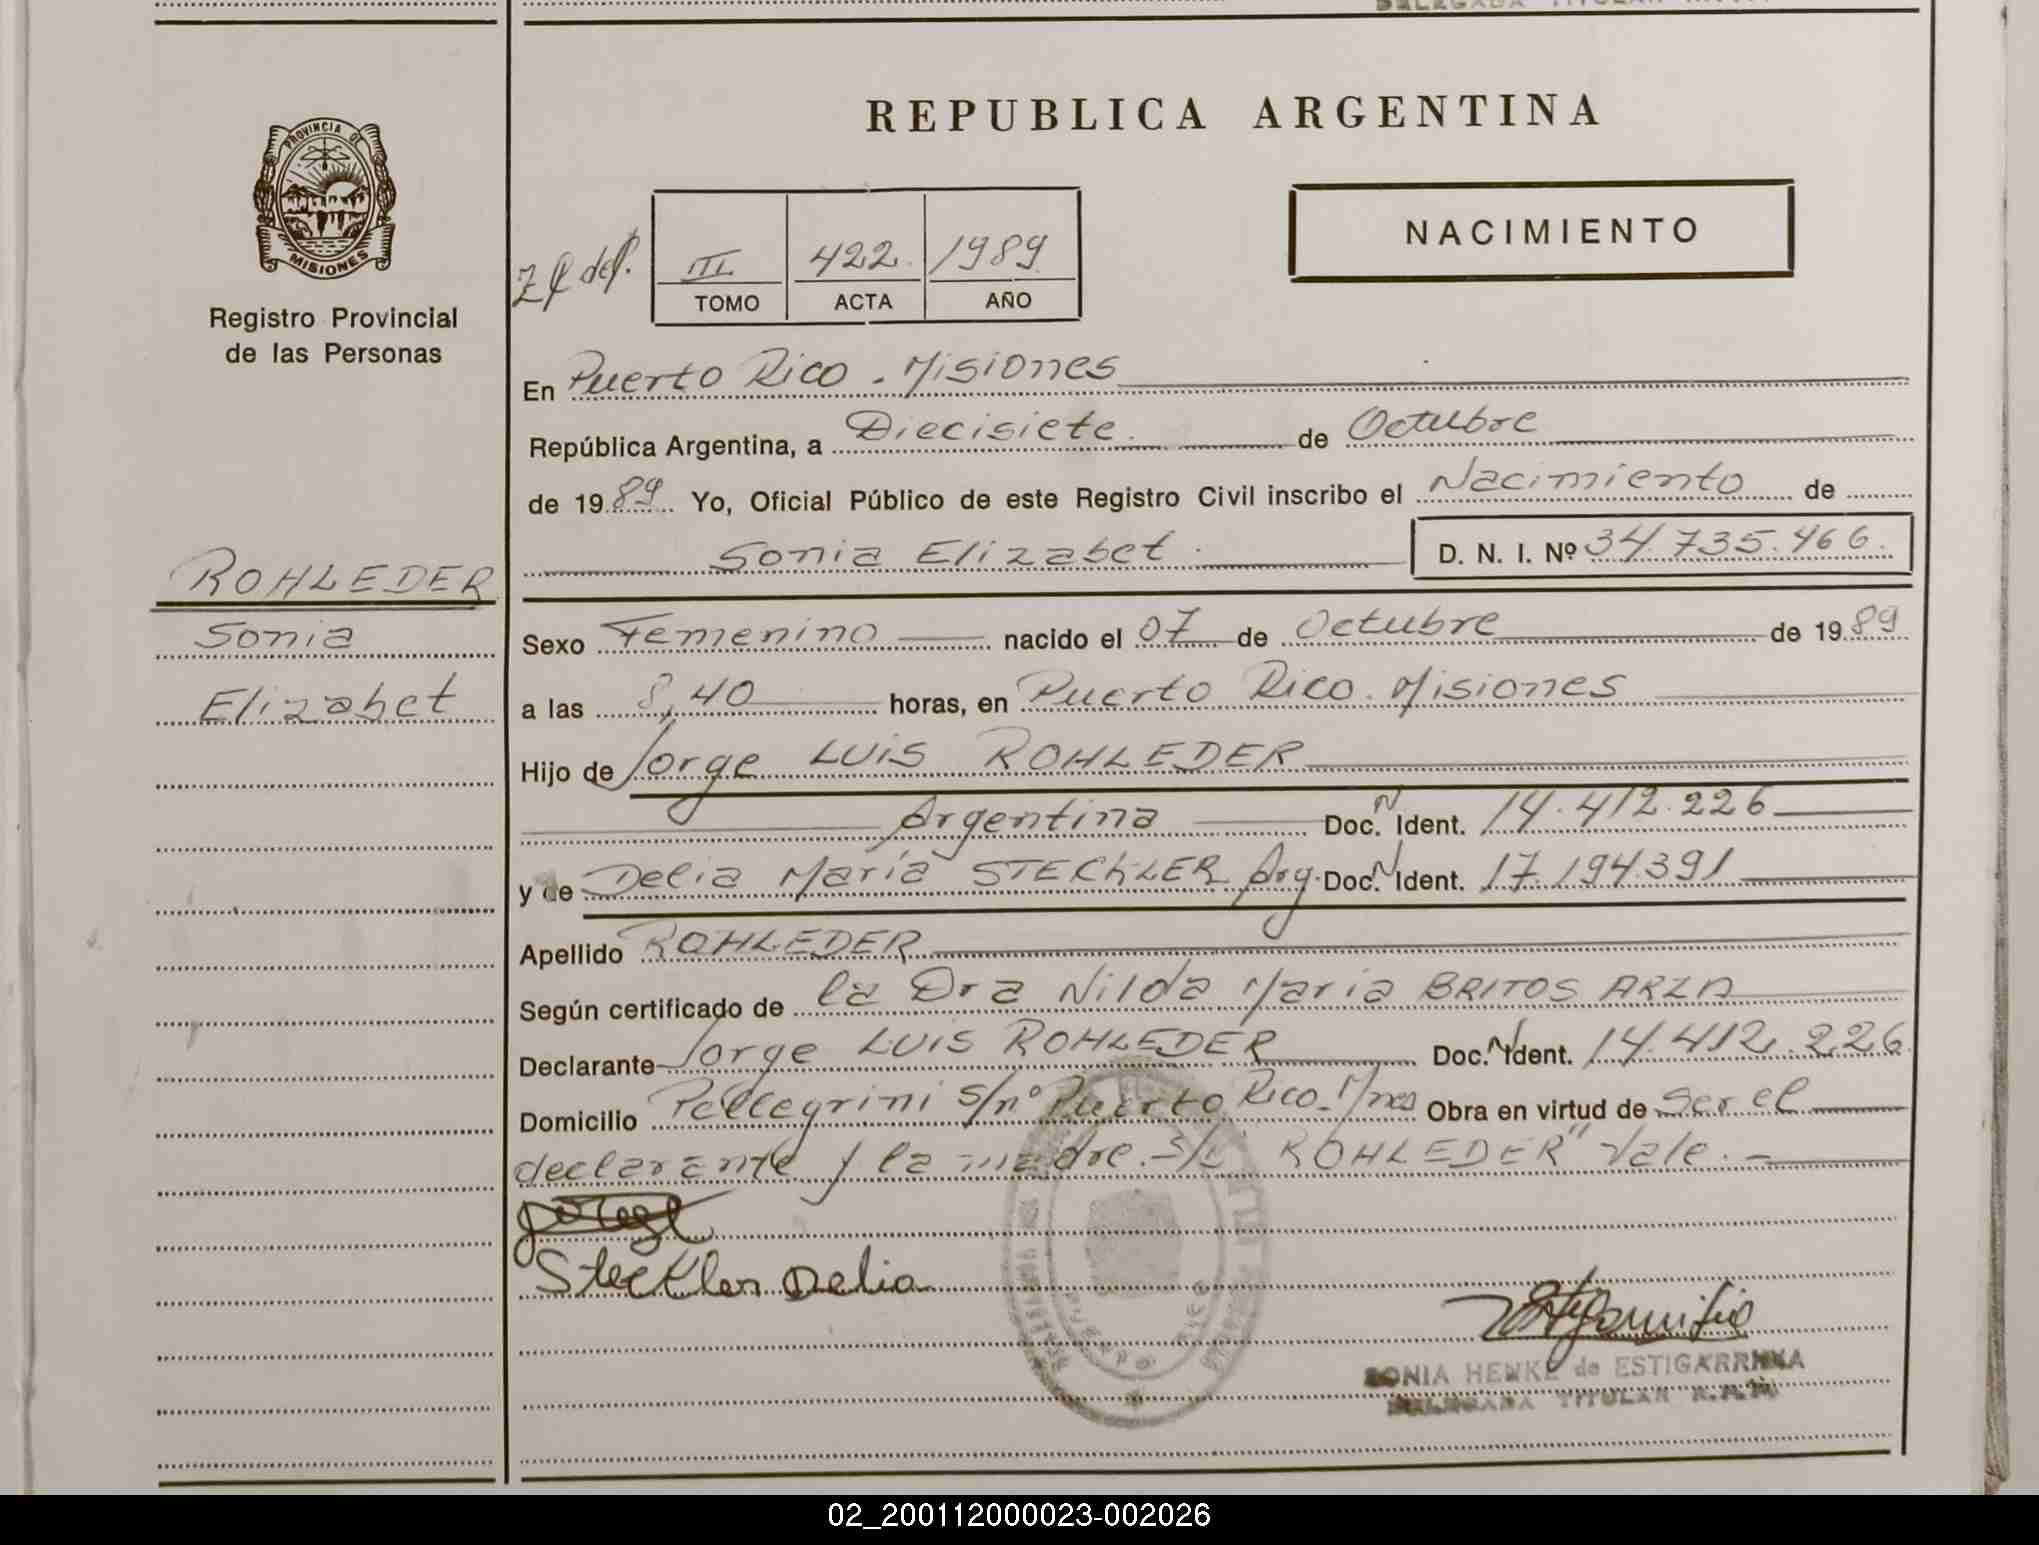 REPUBLICA ARGENTINA
PROVINCIA DE
MISIONES
Registro Provincial
de las Personas
NACIMIENTO
III 422. 1989
TOMO ACTA AÑO
En Puerto Rico. Misiones
República Argentina, a Diecisiete. de Octubre
de 1989 Yo, Oficial Público de este Registro Civil inscribo el Nacimiento de
Sonia Elizabet. D. N. I. Nº 34.735.466.
ROHLEDER
Sonia
Elizabet
Sexo Femenino nacido el 07 de Octubre de 1989
a las 8,40 horas, en Puerto Rico. Misiones
Hijo de Jorge LUIS ROHLEDER
Argentina Doc. N Ident. 14.412.226
y de Delia María STECKLER Arg. Doc. N Ident. 17.194.391
Apellido ROHLEDER
Según certificado de la Dra Nilda María BRITOS ARZA
Declarante Jorge LUIS ROHLEDER Doc. N Ident. 14.412.226
Domicilio Pellegrini s/nº Puerto Rico. M/nes Obra en virtud de ser el
declarante y la madre. S/L ROHLEDER" Vale. -
Steckler Delia
SONIA HENKE de ESTIGARRIBIA
DELEGADA TITULAR R.P.P.
02_200112000023-002026